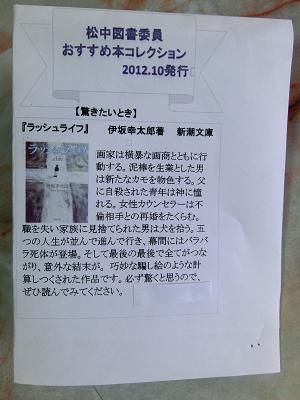 松中図書委員
おすすめ本コレクション
2012.10発行
【驚きたいとき】
『ラッシュライフ』 伊坂幸太郎著 新潮文庫
画家は横暴な画商とともに行
動する。泥棒を生業とした男
は新たなカモを物色する。父
に自殺された青年は神に憧
れる。女性カウンセラーは不
倫相手との再婚をたくらむ。
職を失い家族に見捨てられた男は犬を拾う。五
つの人生が並んで進んで行き、幕間にはバラバ
ラ死体が登場。そして最後の最後で全てがつな
がり、意外な結末が。巧妙な騙し絵のような計
算しつくされた作品です。必ず驚くと思うので、
ぜひ読んでみてください。